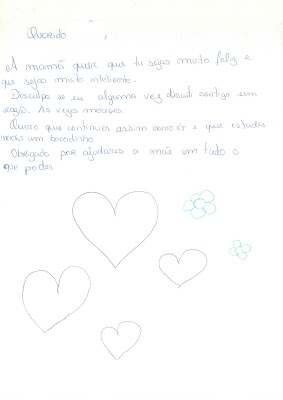 Querido ,
A mamã quer que tu sejas muito feliz e
que sejas muito inteligente.
Desculpa se eu alguma vez discuti contigo sem
razão. Às vezes mereces.
Quero que continues assim como és e que estudes
mais um bocadinho.
Obrigado por ajudares a mãe em tudo o
que poder.